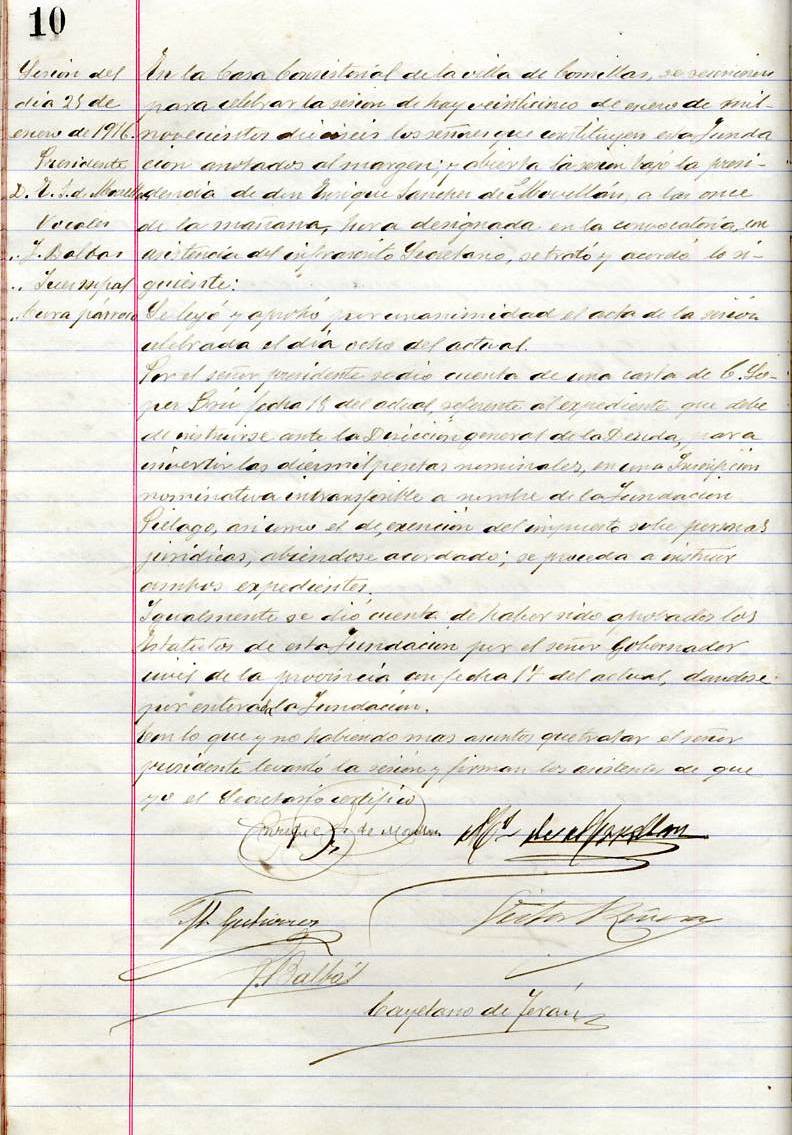 10
Sesión del
dia 25 de
enero de 1916.
Presidente
D. E. S. de Movellan
Vocales
" J. Balbas
" Juez mpal
" Cura párroco
En la Casa Consistorial de la villa de Comillas, se reunieron
para celebrar la sesion de hoy veinticinco de enero de mil
novecientos dieciseis los señores que constituyen esta Funda
ción anotados al margen; y abierta la sesion bajo la presi-
dencia de don Enrique Sanchez de Movellán, a las once
de la mañana, hora designada en la convocatoria, con
asistencia del infrascrito Secretario, se trató y acordó lo si-
guiente:
Se leyó y aprobó por unanimidad el acta de la sesión
celebrada el día ocho del actual.
Por el señor presidente se dio cuenta de una carta de C. Ló-
pez Bru fecha 18 del actual, referente al expediente que debe
de instruirse ante la Dirección general de la Deuda, para
invertir las diez mil pesetas nominales, en una Inscripción
nominativa intransferible a nombre de la Fundación
Piélago, asi como el de exención del impuesto sobre personas
jurídicas, abiéndose acordado; se proceda a instruir
ambos expedientes.
Igualmente se dió cuenta de haber sido aprobados los
Estatutos de esta Fundación por el señor Gobernador
civil de la provincia con fecha 17 del actual, dandose
por enterada la Fundación.
Con lo que y no habiendo mas asuntos que tratar el señor
presidente levantó la sesión y firman los asistentes de que
yo el Secretario certifico
Enrique S. de Movellan
de Movellan
M. Gutierrez
Victor
J. Balbás
Cayetano de Terán